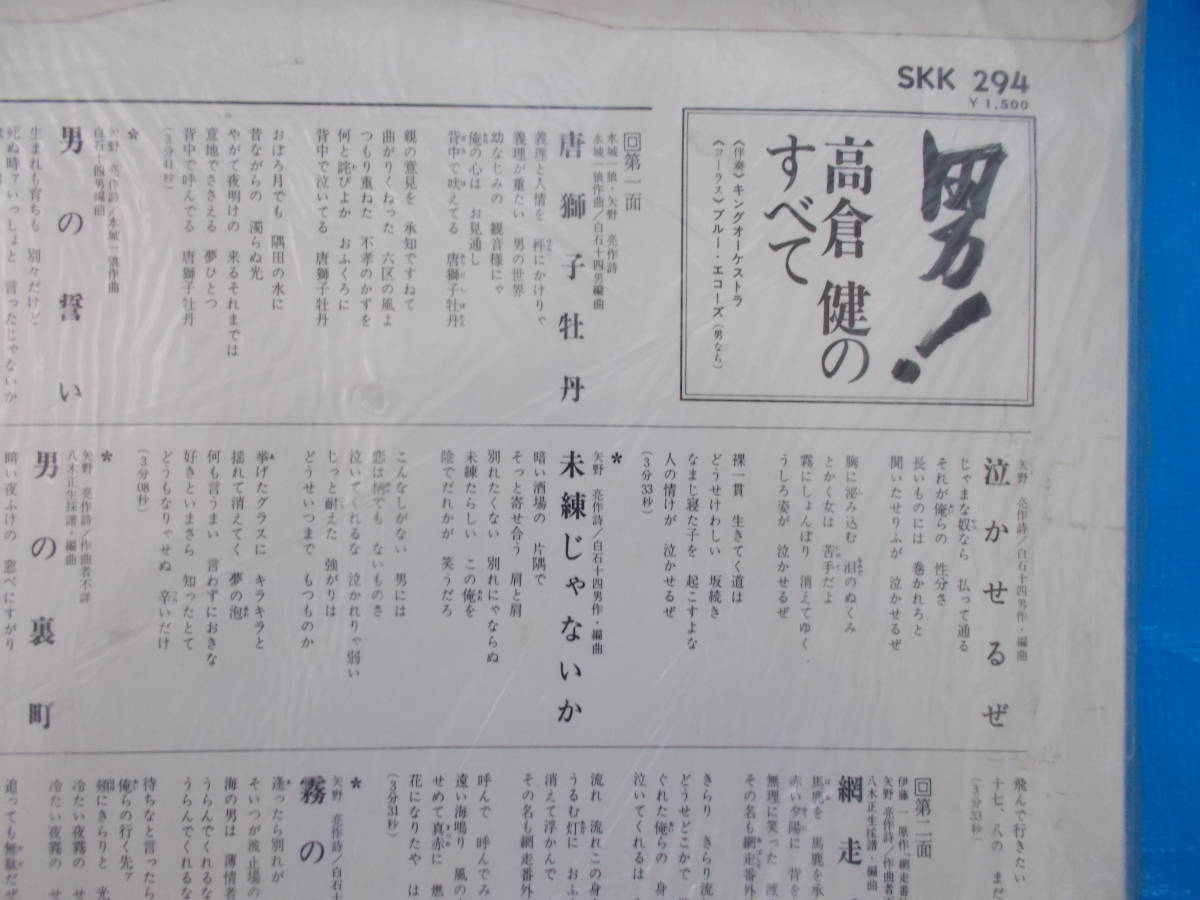 SKK 294
¥1,500
男!
高倉 健の
すべて
《伴奏》キングオーケストラ
《コーラス》ブルー・エコーズ(男なら)
回第一面
水城一狼・矢野 亮作詩
水城一狼作曲/白石十四男編曲
唐獅子牡丹
義理と人情を 秤にかけりゃ
義理が重たい 男の世界
幼なじみの 観音様にゃ
俺の心は お見通し
背中で吠えてる 唐獅子牡丹
親の意見を 承知ですねて
曲がりくねった 六区の風よ
つもり重ねた 不孝のかずを
何と詫びよか おふくろに
背中で泣いてる 唐獅子牡丹
おぼろ月でも 隅田の水に
昔ながらの 濁らぬ光
やがて夜明けの 来るそれまでは
意地でささえる 夢ひとつ
背中で呼んでる 唐獅子牡丹
(3分41秒)
*
矢野 亮作詩/水城一狼作曲
白石十四男編曲
男の誓い
生まれも育ちも 別々だけど
死ぬ時ァいっしょと 言ったじゃないか
矢野 亮作詩/白石十四男作・編曲
泣かせるぜ
じゃまな奴なら 払って通る
それが俺らの 性分さ
長いものには 巻かれろと
聞いたせりふが 泣かせるぜ
胸に泌み込む 泪のぬくみ
とかく女は 苦手だよ
霧にしょんぼり 消えてゆく
うしろ姿が 泣かせるぜ
裸一貫 生きてく道は
どうせけわしい 坂続き
なまじ寝た子を 起こすよな
人の情けが 泣かせるぜ
(3分33秒)
*
矢野 亮作詩/白石十四男作・編曲
未練じゃないか
暗い酒場の 片隅で
そっと寄せ合う 肩と肩
別れたくない 別れにゃならぬ
未練たらしい この俺を
陰でだれかが 笑うだろ
こんなしがない 男には
恋は柄でも ないものさ
泣いてくれるな 泣かれりゃ弱い
じっと耐えた 強がりは
どうせいつまで もつものか
挙げたグラスに キラキラと
揺れて消えてく 夢の泡
何も言うまい 言わずにおきな
好きといまさら 知ったとて
どうもなりゃせぬ 辛いだけ
(3分08秒)
*
矢野 亮作詩/作曲者不詳
八木正生採譜・編曲
男の裏町
暗い夜ふけの 窓べにすがり
飛んで行きたい
十七、八の まだ
(3分33秒)
回第二面
伊藤 一原作「網走番外
矢野 亮作詩/作曲者不
八木正生採譜・編曲
網走
馬鹿を 馬鹿を承
赤い夕陽に 背を
無理に笑った 渡
その名も網走番外
きらり きらり流
どうせどこかで
ぐれた俺らの 身
泣いてくれるは
流れ 流れこの身
うるむ灯に おふ
消えて浮かんで
その名も網走番外
呼んで 呼んでみ
遠い海鳴り 風の
せめて真赤に 燃
花になりたや は
(3分31秒)
*
矢野 亮作詩/白石十
霧の
逢ったら別れが
そいつが波止場の
海の男は 薄情者
うらんでくれるな
うらんでくれるな
待ちなと言ったら
俺らの行く先ァ
頬にきらりと 光
冷たい夜霧の せ
冷たい夜霧の せ
追っても無駄だぜ